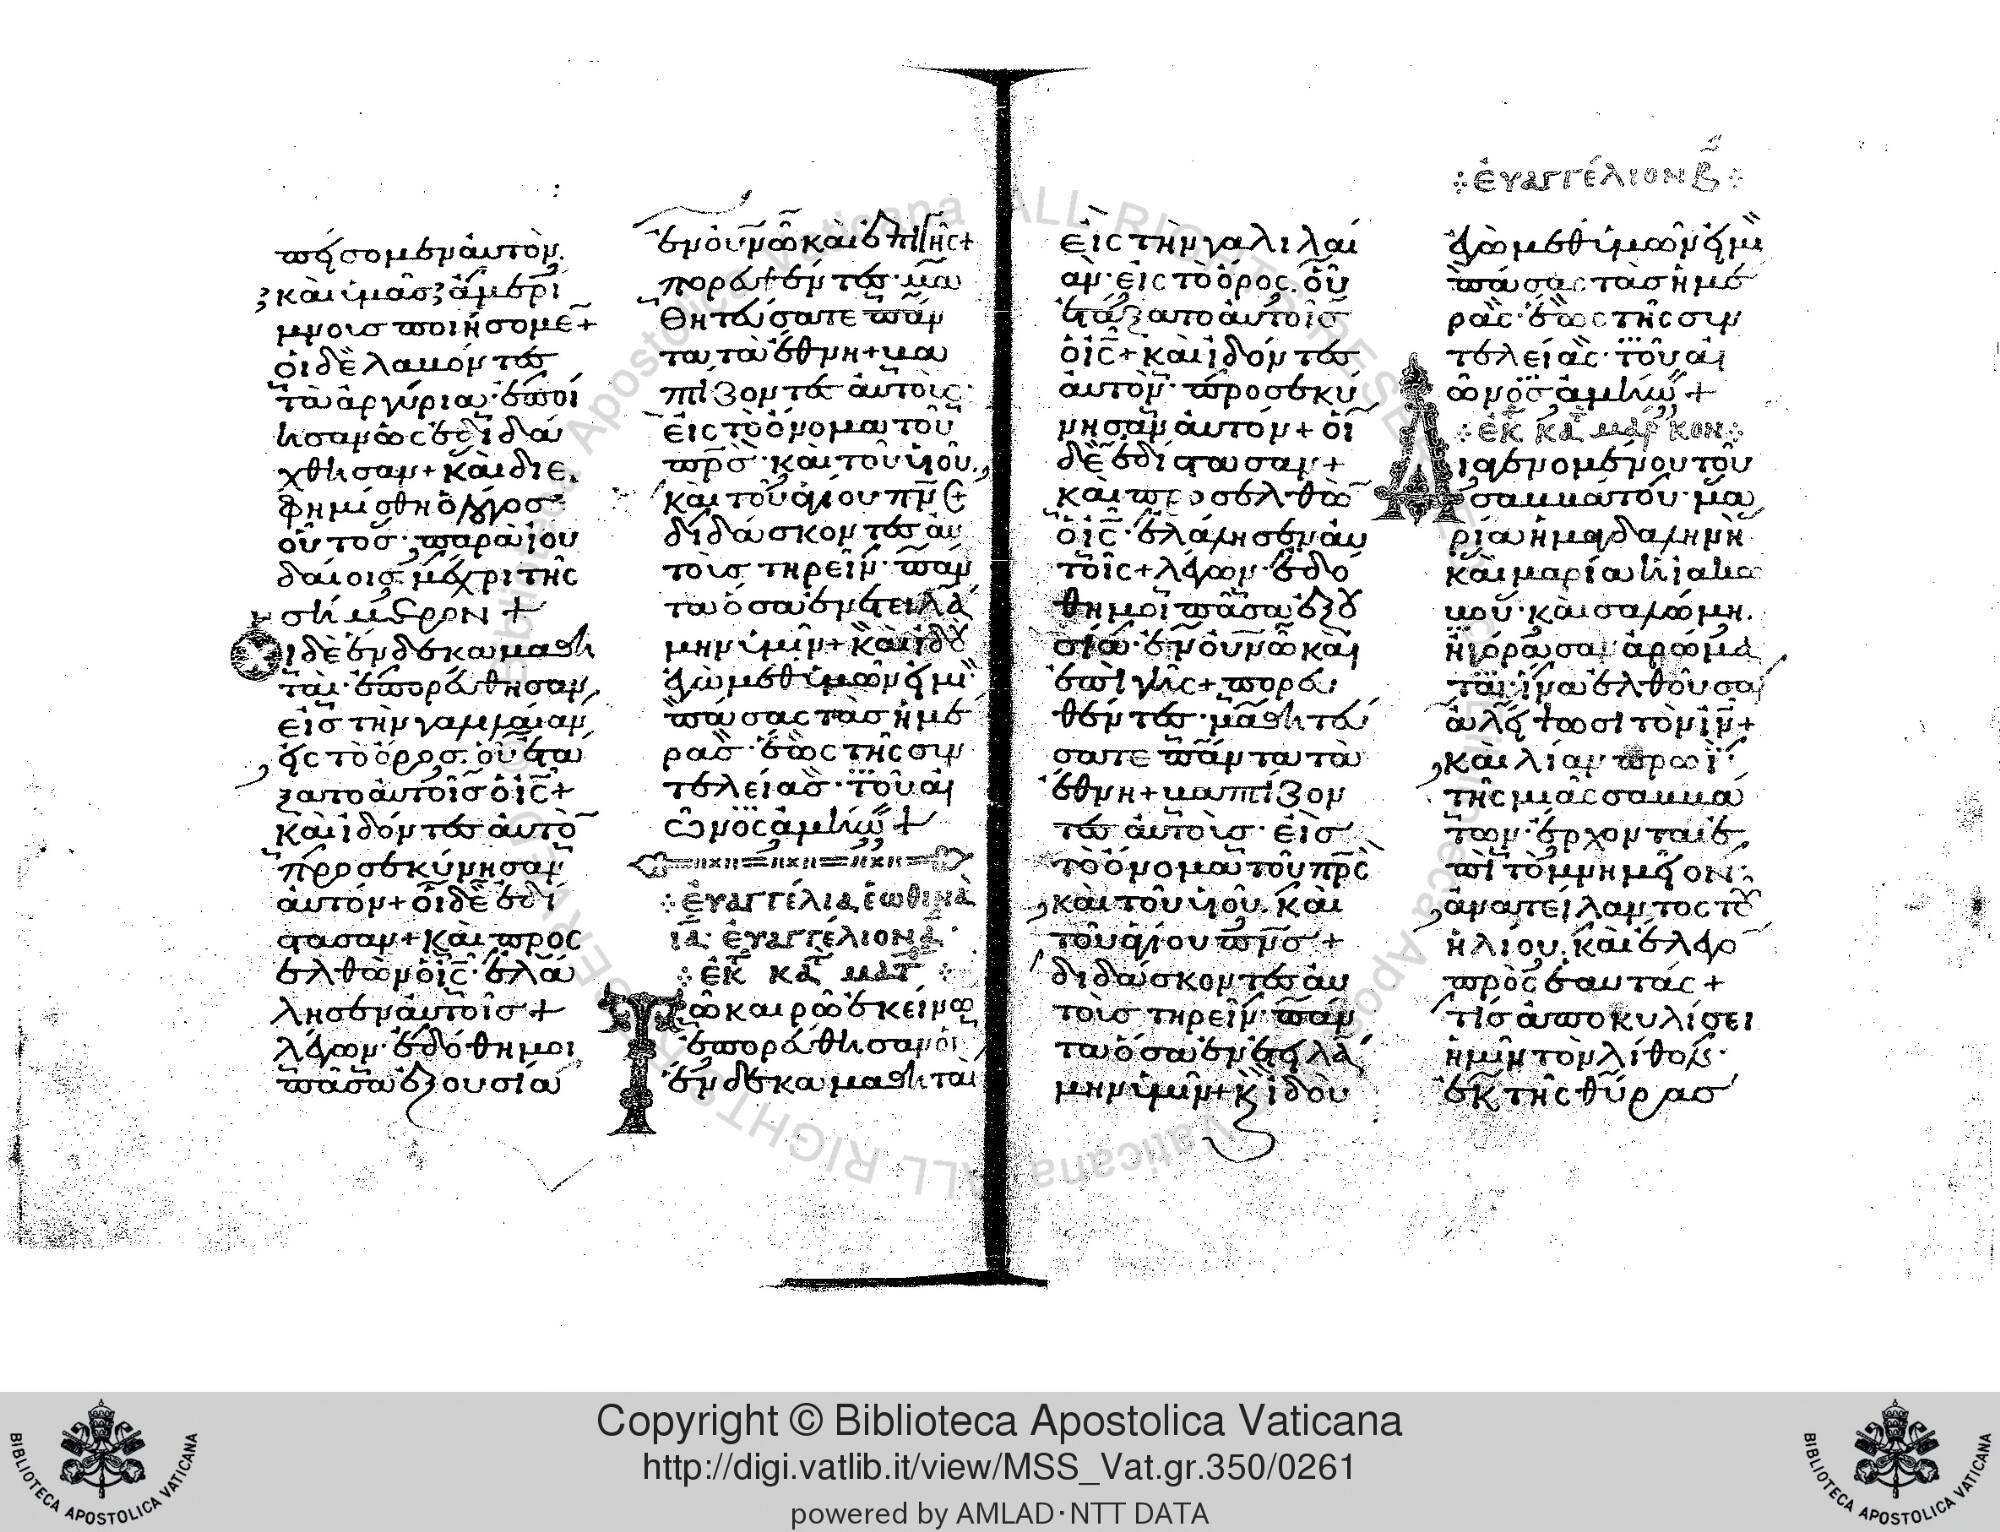 πείσομεν αὐτὸν.
καὶ ὑμᾶς ἀμερί
μνους ποιήσομε̅+
οἱ δὲ λαβόντες
τὰ ἀργύρια· ἐποί
ησαν ὡς ἐδιδά
χθησαν+ καὶ διε
φημίσθη ὁ λόγος
οὗτος· παρὰ ἰου
δαίοις μέχρι τῆς
σήμερον +
Οἱ δὲ ἕνδεκα μαθη
ταὶ· ἐπορεύθησαν
εἰς τὴν γαλιλαίαν
εἰς τὸ ὄρος. οὗ ἐτά
ξατο αὐτοῖς ὁ ις+
καὶ ἰδόντες αὐτὸ̅
προσεκύνησαν
αὐτόν+ οἱ δὲ ἐδί
στασαν+ καὶ προσ
ελθὼν ὁ ις· ἐλά
λησεν αὐτοῖς +
λέγων· ἐδόθη μοι
πᾶσα ἐξουσία
ἐν οὐνῶ καὶ ἐπὶ γῆς+
πορευθέντες· μα
θητεύσατε πάν
τα τὰ ἔθνη+ βα
πτίζοντες αὐτοὺς·
εἰς τὸ ὄνομα τοῦ
πρς· καὶ τοῦ υἱοῦ.
καὶ τοῦ ἁγίου πν̅ς+
διδάσκοντες αὐ
τοὺς τηρεῖν· πάν
τα ὅσα ἐνετειλά
μην ὑμῖν+ καὶ ἰδοὺ
ἐγὼ μεθ' ὑμῶν εἰμι·
πάσας τὰς ἡμέ
ρας· ἕως τῆς συν
τελείας· τοῦ αἰ
ῶνος ἀμήν +
ΕΥΑΓΓΕΛΙΑ ΕΩΘΙΝΑ
ΙΑ· ΕΥΑΓΓΕΛΙΟΝ Α·
ΕΚ ΚΑΤ ΜΑΤ
Τῶ καιρῶ ἐκείνω
ἐπορεύθησαν οἱ
ἕνδεκα μαθηταὶ
εἰς τὴν γαλιλαί
αν· εἰς τὸ ὄρος. οὗ
ἐτάξατο αὐτοῖς
ὁ ις+ καὶ ἰδόντες
αὐτὸν· προσεκύ
νησαν αὐτόν+ οἱ
δὲ ἐδίστασαν+
καὶ προσελθὼ̅
ὁ ις· ἐλάλησεν αὐ
τοῖς+ λέγων· ἐδό
θη μοι πᾶσα ἐξου
σία· ἐν οὐνῶ καὶ
ἐπὶ γῆς+ πορευ
θέντες· μαθητεύ
σατε πάντα τὰ
ἔθνη+ βαπτίζον
τες αὐτοὺς· εἰς
τὸ ὄνομα τοῦ πρς
καὶ τοῦ υἱοῦ. καὶ
τοῦ ἁγίου πν̅ς +
διδάσκοντες αὐ
τοὺς τηρεῖν· πάν
τα ὅσα ἐνετειλά
μην ὑμῖν+ κ ἰδοὺ
ΕΥΑΓΓΕΛΙΟΝ Β
ἐγὼ μεθ' ὑμῶν εἰμὶ
πάσας τὰς ἡμέ
ρας· ἕως τῆς συν
τελείας· τοῦ αἰ
ῶνος ἀμήν +
ΕΚ ΚΑΤ ΜΑΡΚΟΝ
Διαγενομένου τοῦ
σαββάτου· μα
ρία ἡ μαγδαληνὴ
καὶ μαρία ἡ ἰακώ
βου· καὶ σαλώμη.
ἠγόρασαν ἀρώμα
τα· ἵνα ἐλθοῦσαι
ἀλείψωσι τὸν ιν+
καὶ λίαν πρωῒ·
τῆς μιᾶς σαββά
των· ἔρχονται ἐ
πὶ τὸ μνημεῖον·
ἀνατείλαντος τοῦ
ἡλίου. καὶ ἔλεγο̅
πρὸς ἑαυτάς +
τίς ἀποκυλίσει
ἡμῖν τὸν λίθον·
ἐκ τῆς θύρας
Copyright © Biblioteca Apostolica Vaticana
http://digi.vatlib.it/view/MSS_Vat.gr.350/0261
powered by AMLAD·NTT DATA
BIBLIOTECA APOSTOLICA VATICANA
BIBLIOTECA APOSTOLICA VATICANA